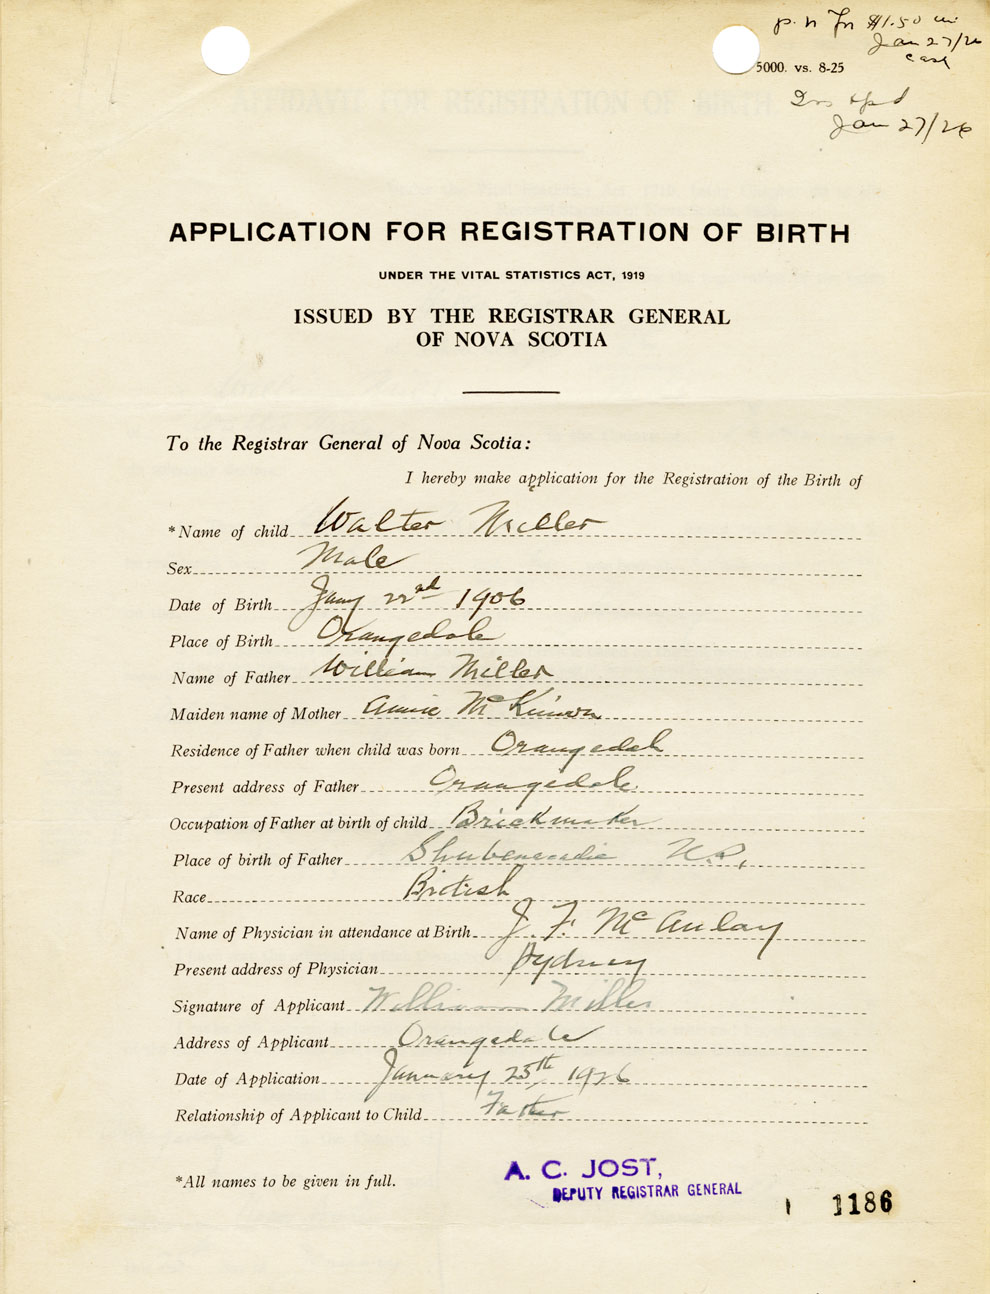 p. n for $1.50 in
Jan 27/26
cash
5000. vs. 8-25
Jan 27/26
APPLICATION FOR REGISTRATION OF BIRTH
UNDER THE VITAL STATISTICS ACT, 1919
ISSUED BY THE REGISTRAR GENERAL
OF NOVA SCOTIA
To the Registrar General of Nova Scotia:
I hereby make application for the Registration of the Birth of
*Name of child Walter Miller
Sex Male
Date of Birth Jany 22nd 1906
Place of Birth Orangedale
Name of Father William Miller
Maiden name of Mother Annie McKinnon
Residence of Father when child was born Orangedale
Present address of Father Orangedale
Occupation of Father at birth of child Brickmaker
Place of birth of Father Shubenacadie N.S.,
Race British
Name of Physician in attendance at Birth J. F. McAulay
Present address of Physician Sydney
Signature of Applicant William Miller
Address of Applicant Orangedale
Date of Application January 25th 1926
Relationship of Applicant to Child Father
*All names to be given in full.
A. C. JOST,
DEPUTY REGISTRAR GENERAL
1186